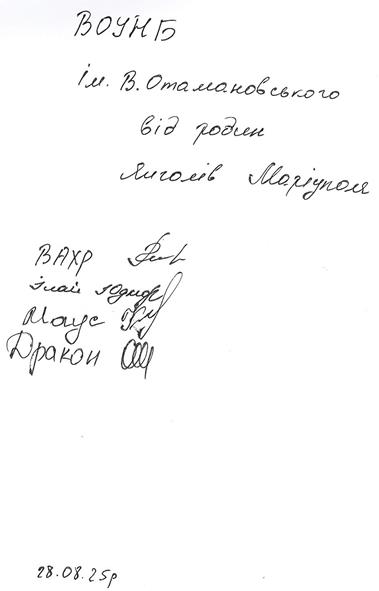 ВОУНБ
ім. В. Отамановського
від родин
Янголів Маріуполя
ВАХР
Маус
Дракон
28.08.25р